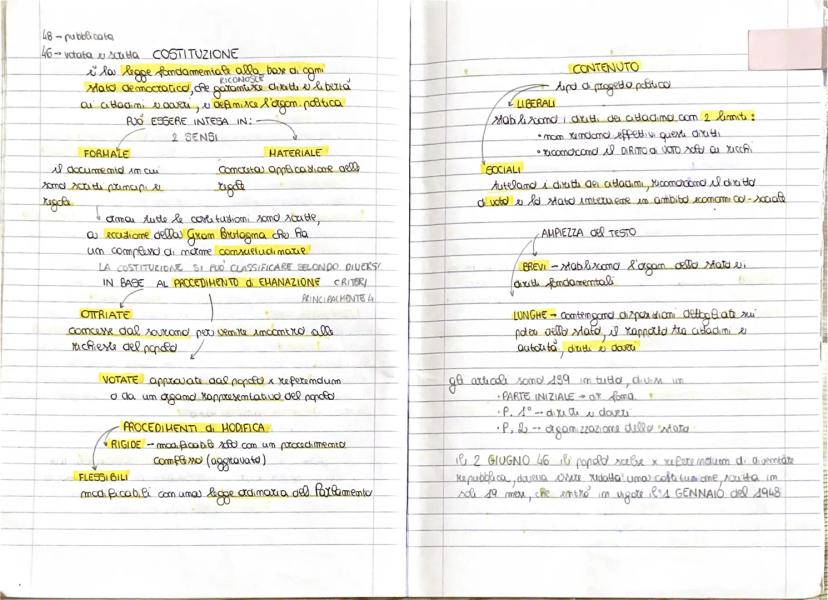 48 → pubblicata
46 → votata e scritta COSTITUZIONE
è la legge fondamentale alla base di ogni
stato democratico, che garantisce diritti e libertà
RICONOSCE
ai cittadini e doveri, e definisce l'organ. politica
PUÒ ESSERE INTESA IN:
2 SENSI
FORMALE
il documento in cui
sono scritti principi e
regole
MATERIALE
concreta applicazione delle
regole
ormai tutte le costituzioni sono scritte,
a eccezione della Gran Bretagna che ha
un complesso di norme consuetudinarie
LA COSTITUZIONE SI PUÒ CLASSIFICARE SECONDO DIVERSI
CRITERI
PRINCIPALMENTE 4
IN BASE AL PROCEDIMENTO di EMANAZIONE
OTTRIATE
concesse dal sovrano per venire incontro alle
richieste del popolo
VOTATE approvate dal popolo x referendum
o da un organo rappresentativo del popolo
PROCEDIMENTI di MODIFICA
RIGIDE → modificabili solo con un procedimento
complesso (aggravato)
FLESSIBILI
modificabili con una legge ordinaria del Parlamento
CONTENUTO
tipo di progetto politico
LIBERALI
stabiliscono i diritti dei cittadini con 2 limiti:
• non rendono effettivi questi diritti
• riconoscono il DIRITTO di VOTO solo ai ricchi
SOCIALI
tutelano i diritti dei cittadini, riconoscono il diritto
di voto e lo stato interviene in ambito economico-sociale
AMPIEZZA del TESTO
BREVI → stabiliscono l'organ. dello stato e i
diritti fondamentali
LUNGHE → contengono disposizioni dettagliate sui
poteri dello stato, il rapporto tra cittadini e
autorità, diritti e doveri
gli articoli sono 139 in tutto, divisi in
• PARTE INIZIALE → art. fond.
• P. 1° → diritti e doveri
• P. 2 → organizzazione dello stato
il 2 GIUGNO 46 il popolo scelse x referendum di diventare
repubblica, doveva essere redatta una costituzione, scritta in
soli 19 mesi, che entrò in vigore il 1 GENNAIO del 1948